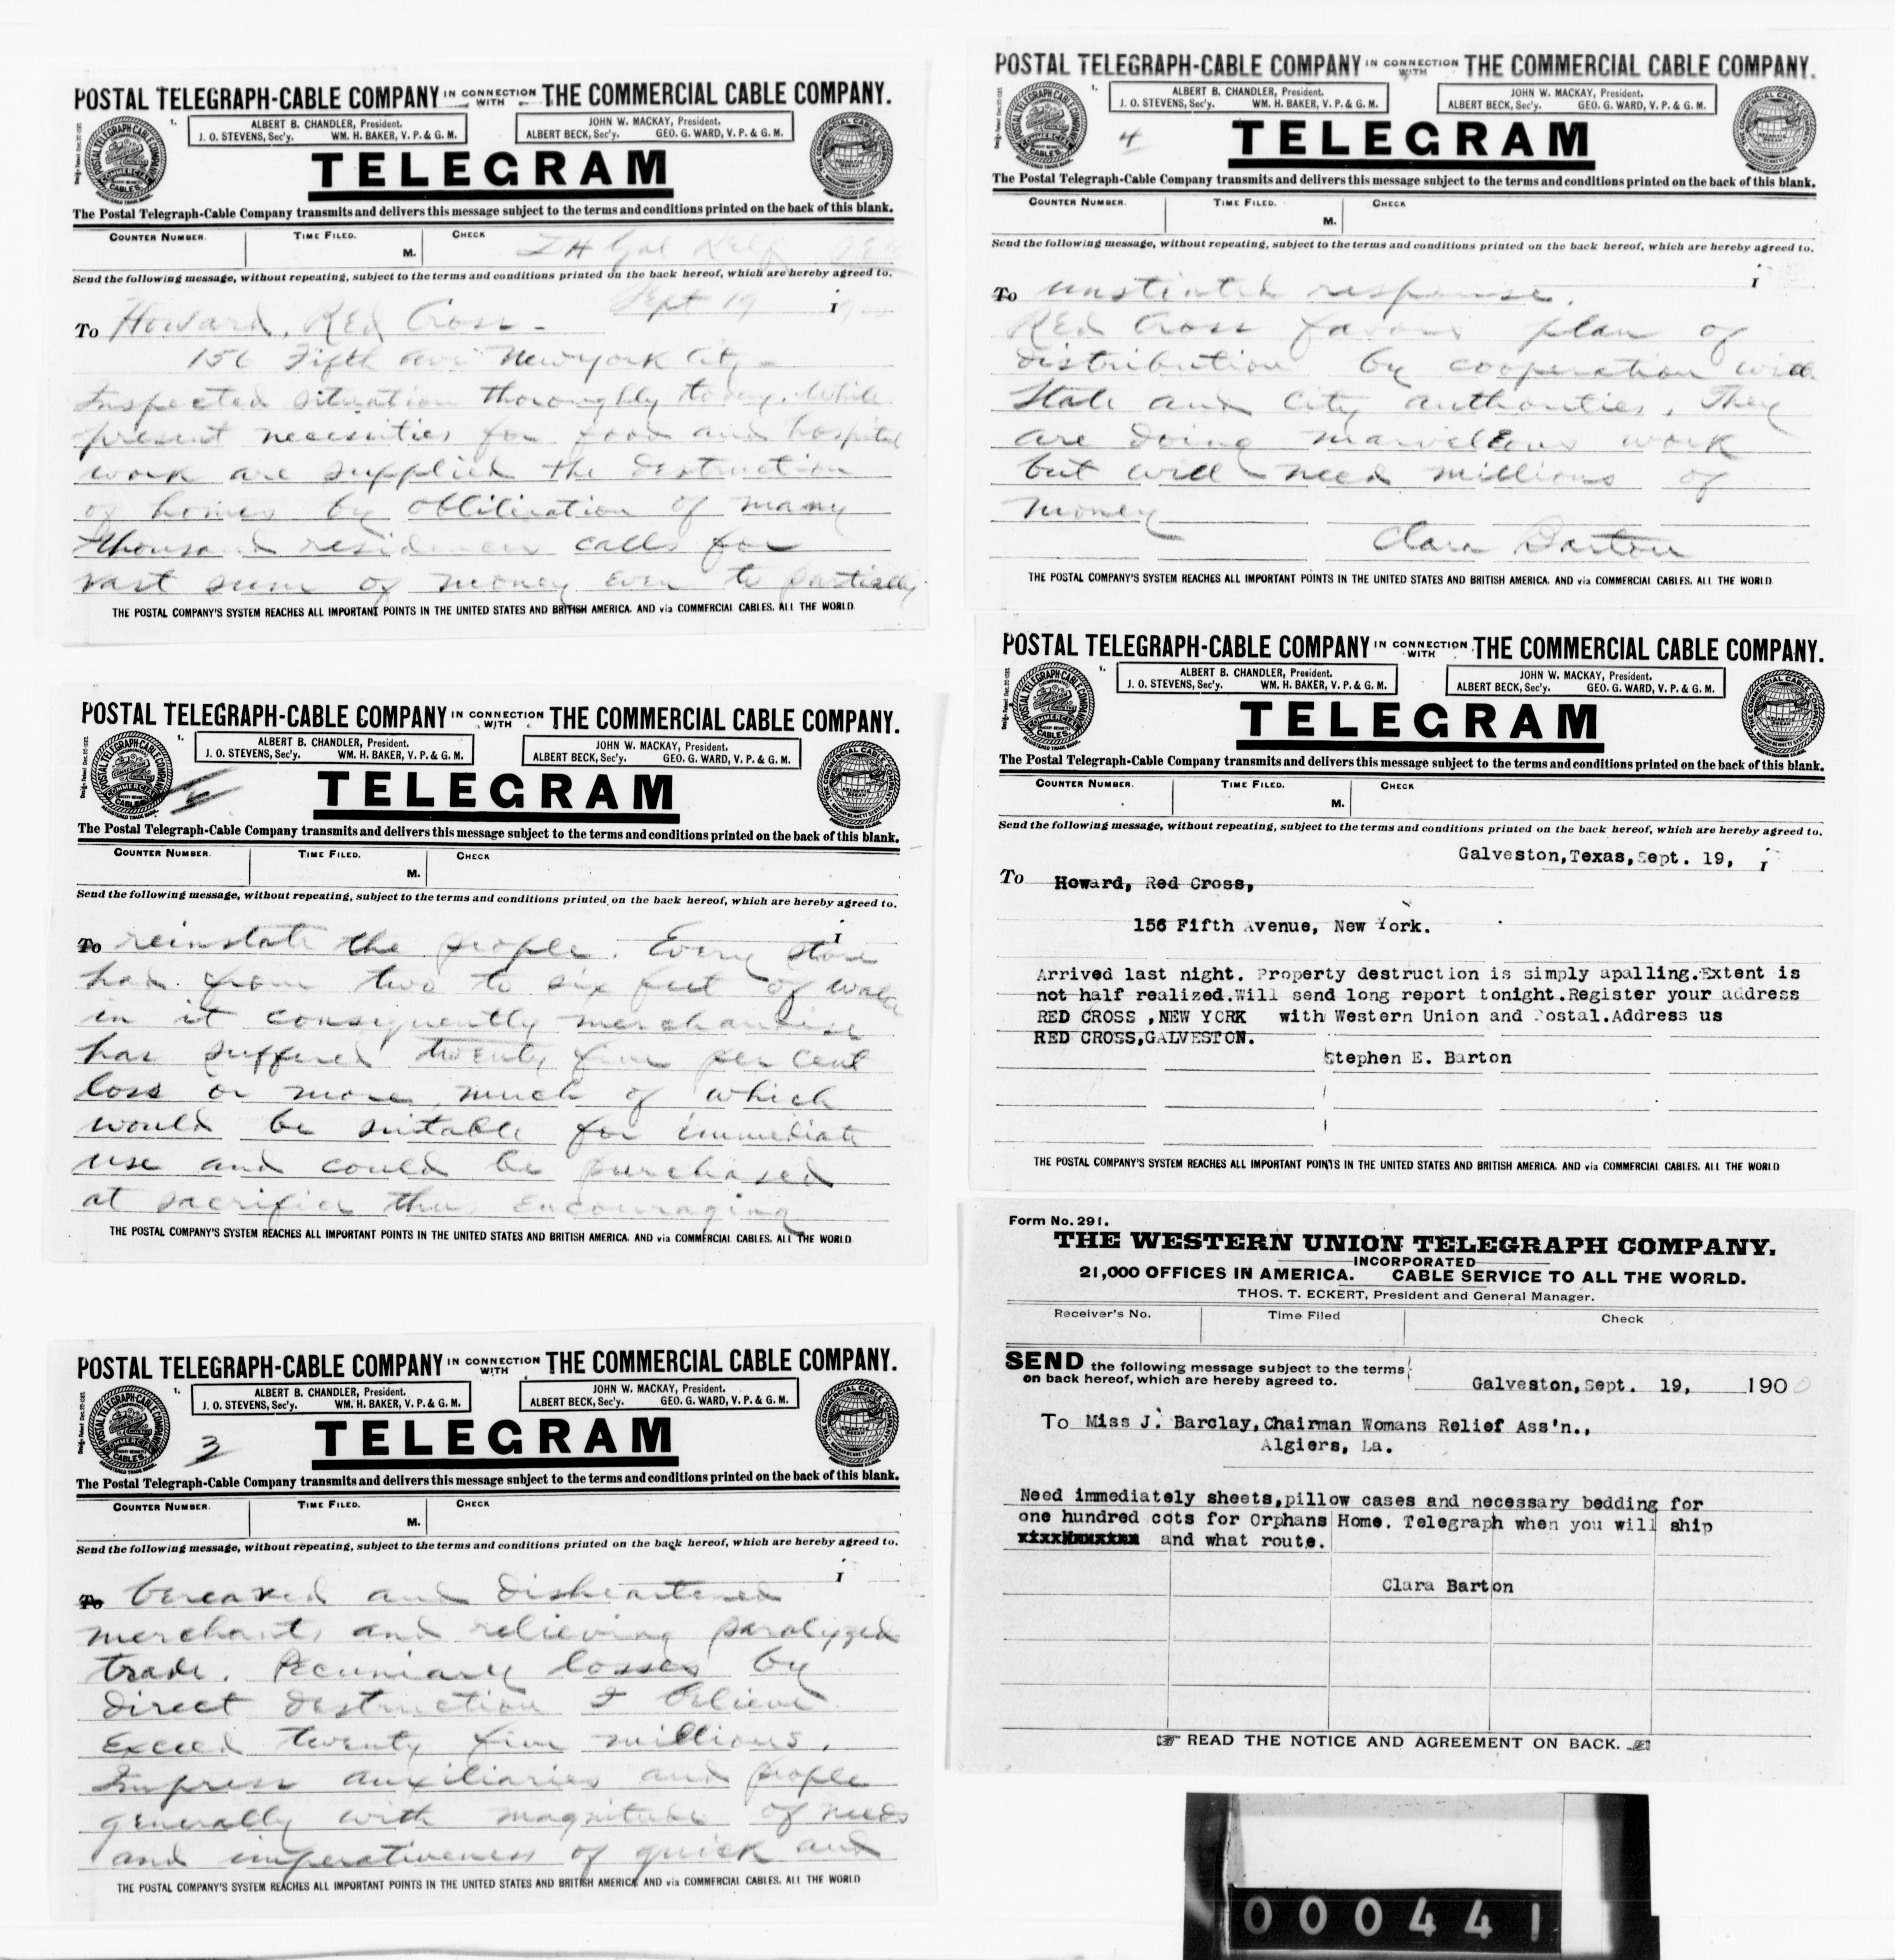 POSTAL TELEGRAPH-CABLE COMPANY IN CONNECTION WITH THE COMMERCIAL CABLE COMPANY.
ALBERT B. CHANDLER, President.
J. O. STEVENS, Sec'y. WM. H. BAKER, V. P. & G. M.
JOHN W. MACKAY, President.
ALBERT BECK, Sec'y. GEO. G. WARD, V. P. & G. M.
TELEGRAM
The Postal Telegraph-Cable Company transmits and delivers this message subject to the terms and conditions printed on the back of this blank.
COUNTER NUMBER. TIME FILED. M. CHECK
Send the following message, without repeating, subject to the terms and conditions printed on the back hereof, which are hereby agreed to.
Sept 19 1900
To Howard, Red Cross -
156 Fifth Ave New York City -
Inspected situation thoroughly today. While
present necessities for food and hospital
work are supplied the destruction
of homes by obliteration of many
thousand residences calls for
vast sum of money even to partially
THE POSTAL COMPANY'S SYSTEM REACHES ALL IMPORTANT POINTS IN THE UNITED STATES AND BRITISH AMERICA, AND via COMMERCIAL CABLES, ALL THE WORLD
POSTAL TELEGRAPH-CABLE COMPANY IN CONNECTION WITH THE COMMERCIAL CABLE COMPANY.
ALBERT B. CHANDLER, President.
J. O. STEVENS, Sec'y. WM. H. BAKER, V. P. & G. M.
JOHN W. MACKAY, President.
ALBERT BECK, Sec'y. GEO. G. WARD, V. P. & G. M.
TELEGRAM
The Postal Telegraph-Cable Company transmits and delivers this message subject to the terms and conditions printed on the back of this blank.
COUNTER NUMBER. TIME FILED. M. CHECK
Send the following message, without repeating, subject to the terms and conditions printed on the back hereof, which are hereby agreed to.
To reinstate the people. Every store
had from two to six feet of water
in it consequently merchandise
has suffered twenty five per cent
loss or more, much of which
would be suitable for immediate
use and could be purchased
at sacrifice thus encouraging
THE POSTAL COMPANY'S SYSTEM REACHES ALL IMPORTANT POINTS IN THE UNITED STATES AND BRITISH AMERICA, AND via COMMERCIAL CABLES, ALL THE WORLD
POSTAL TELEGRAPH-CABLE COMPANY IN CONNECTION WITH THE COMMERCIAL CABLE COMPANY.
ALBERT B. CHANDLER, President.
J. O. STEVENS, Sec'y. WM. H. BAKER, V. P. & G. M.
JOHN W. MACKAY, President.
ALBERT BECK, Sec'y. GEO. G. WARD, V. P. & G. M.
3
TELEGRAM
The Postal Telegraph-Cable Company transmits and delivers this message subject to the terms and conditions printed on the back of this blank.
COUNTER NUMBER. TIME FILED. M. CHECK
Send the following message, without repeating, subject to the terms and conditions printed on the back hereof, which are hereby agreed to.
To bereaved and disheartened
merchants and relieving paralyzed
trade. Pecuniary losses by
direct destruction I believe
exceed twenty five millions.
Impress auxiliaries and people
generally with magnitude of needs
and imperativeness of quick and
THE POSTAL COMPANY'S SYSTEM REACHES ALL IMPORTANT POINTS IN THE UNITED STATES AND BRITISH AMERICA, AND via COMMERCIAL CABLES, ALL THE WORLD
POSTAL TELEGRAPH-CABLE COMPANY IN CONNECTION WITH THE COMMERCIAL CABLE COMPANY.
ALBERT B. CHANDLER, President.
J. O. STEVENS, Sec'y. WM. H. BAKER, V. P. & G. M.
JOHN W. MACKAY, President.
ALBERT BECK, Sec'y. GEO. G. WARD, V. P. & G. M.
4
TELEGRAM
The Postal Telegraph-Cable Company transmits and delivers this message subject to the terms and conditions printed on the back of this blank.
COUNTER NUMBER. TIME FILED. M. CHECK
Send the following message, without repeating, subject to the terms and conditions printed on the back hereof, which are hereby agreed to.
To unstinted response.
Red Cross favors plan of
distribution by cooperation with
State and City authorities. They
are doing marvellous work
but will need millions of
money
Clara Barton
THE POSTAL COMPANY'S SYSTEM REACHES ALL IMPORTANT POINTS IN THE UNITED STATES AND BRITISH AMERICA, AND via COMMERCIAL CABLES, ALL THE WORLD
POSTAL TELEGRAPH-CABLE COMPANY IN CONNECTION WITH THE COMMERCIAL CABLE COMPANY.
ALBERT B. CHANDLER, President.
J. O. STEVENS, Sec'y. WM. H. BAKER, V. P. & G. M.
JOHN W. MACKAY, President.
ALBERT BECK, Sec'y. GEO. G. WARD, V. P. & G. M.
TELEGRAM
The Postal Telegraph-Cable Company transmits and delivers this message subject to the terms and conditions printed on the back of this blank.
COUNTER NUMBER. TIME FILED. M. CHECK
Send the following message, without repeating, subject to the terms and conditions printed on the back hereof, which are hereby agreed to.
Galveston,Texas,Sept. 19, 1
To Howard, Red Cross,
156 Fifth Avenue, New York.
Arrived last night. Property destruction is simply apalling.Extent is
not half realized.Will send long report tonight.Register your address
RED CROSS ,NEW YORK with Western Union and Postal.Address us
RED CROSS,GALVESTON.
Stephen E. Barton
THE POSTAL COMPANY'S SYSTEM REACHES ALL IMPORTANT POINTS IN THE UNITED STATES AND BRITISH AMERICA, AND via COMMERCIAL CABLES, ALL THE WORLD
Form No. 291.
THE WESTERN UNION TELEGRAPH COMPANY.
INCORPORATED
21,000 OFFICES IN AMERICA. CABLE SERVICE TO ALL THE WORLD.
THOS. T. ECKERT, President and General Manager.
Receiver's No. Time Filed Check
SEND the following message subject to the terms
on back hereof, which are hereby agreed to.
Galveston,Sept. 19, 1900
To Miss J. Barclay,Chairman Womans Relief Ass'n.,
Algiers, La.
Need immediately sheets,pillow cases and necessary bedding for
one hundred cots for Orphans Home. Telegraph when you will ship
and what route.
Clara Barton
READ THE NOTICE AND AGREEMENT ON BACK.
000441